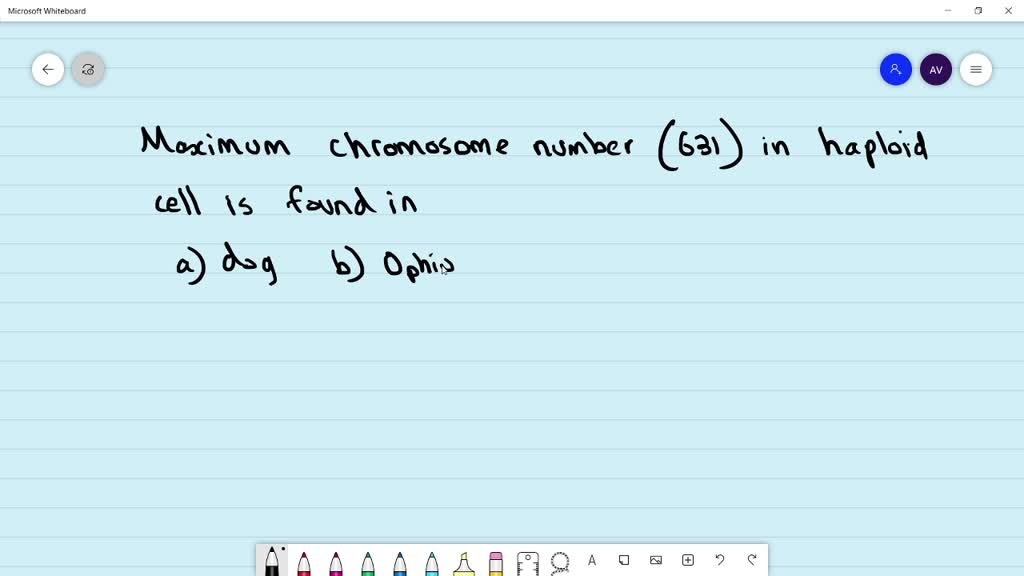 Microsoft Whiteboard
AV
Maximum chromosome number (631) in haploid
cell is found in
a) dog b) Ophio
A